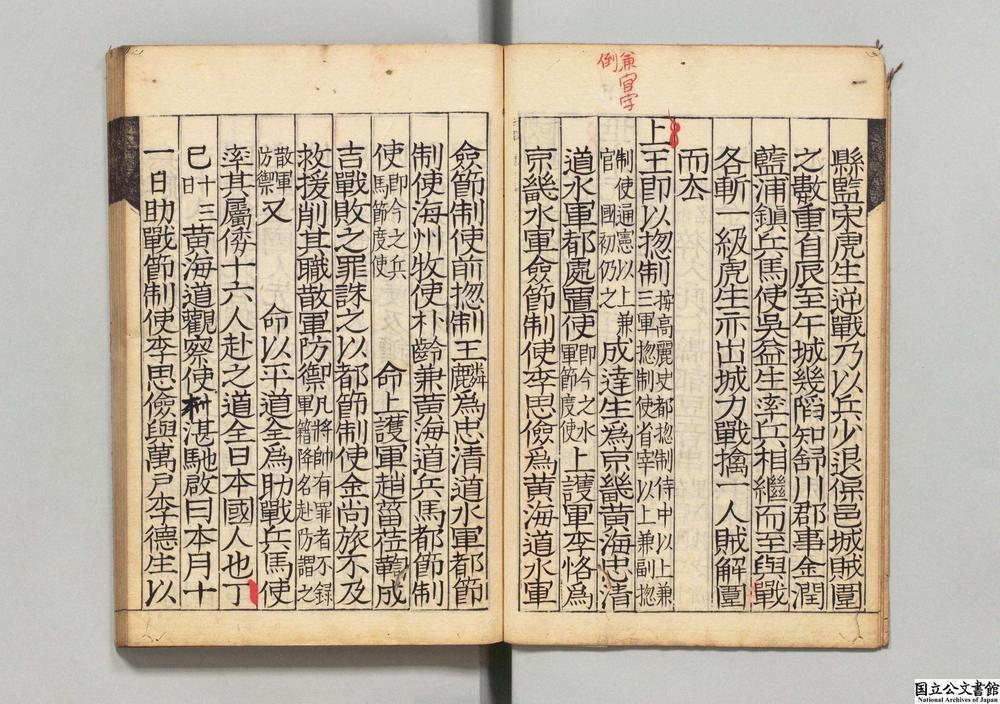 兼官字
倒
縣監宋虎生逆戰乃以兵少退保邑城賊圍
之數重自辰至午城幾陷知舒川郡事金潤
藍浦鎭兵馬使吳益生率兵相繼而至與戰
各斬一級虎生亦出城力戰擒一人賊解圍
而去
上王即以捴制 按高麗史都捴制侍中以上兼三軍捴制使省宰以上兼副捴
制使通憲以上兼官 國初仍之 成達生爲京畿黃海忠清
道水軍都處置使 即今之水軍節度使 上護軍李恪爲
京畿水軍僉節制使李思儉爲黃海道水軍
僉節制使前捴制王麟爲忠清道水軍都節
制使海州牧使朴齡兼黃海道兵馬都節制
使 即今之兵馬節度使 命上護軍趙菑莅
吉戰敗之罪誅之以都節制使金尚旅不及
救援削其職散軍防禦 凡將帥有罪者不錄軍籍降名赴防謂之
散軍防禦 又 命以平道全爲助戰兵馬使
率其屬倭十六人赴之道全日本國人也丁
巳 十三日 黃海道觀察使權湛馳啟曰本月十
一日助戰節制使李思儉與萬戶李德生以
国立公文書館
National Archives of Japan